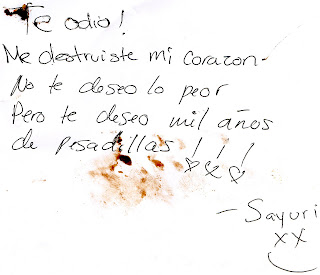 Te odio!
Me destruiste mi corazon.
No te deseo lo peor
Pero te deseo mil años
de pesadillas!!!
- Sayuri
xx